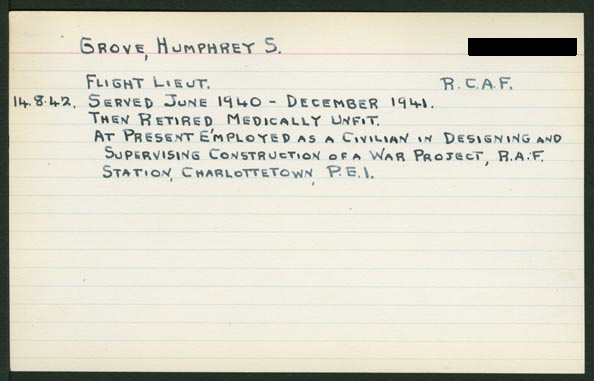 GROVE, HUMPHREY S.
FLIGHT LIEUT. R.C.A.F.
14.8.42. SERVED JUNE 1940 - DECEMBER 1941.
THEN RETIRED MEDICALLY UNFIT.
AT PRESENT EMPLOYED AS A CIVILIAN IN DESIGNING AND
SUPERVISING CONSTRUCTION OF A WAR PROJECT, R.A.F.
STATION, CHARLOTTETOWN, P.E.I.